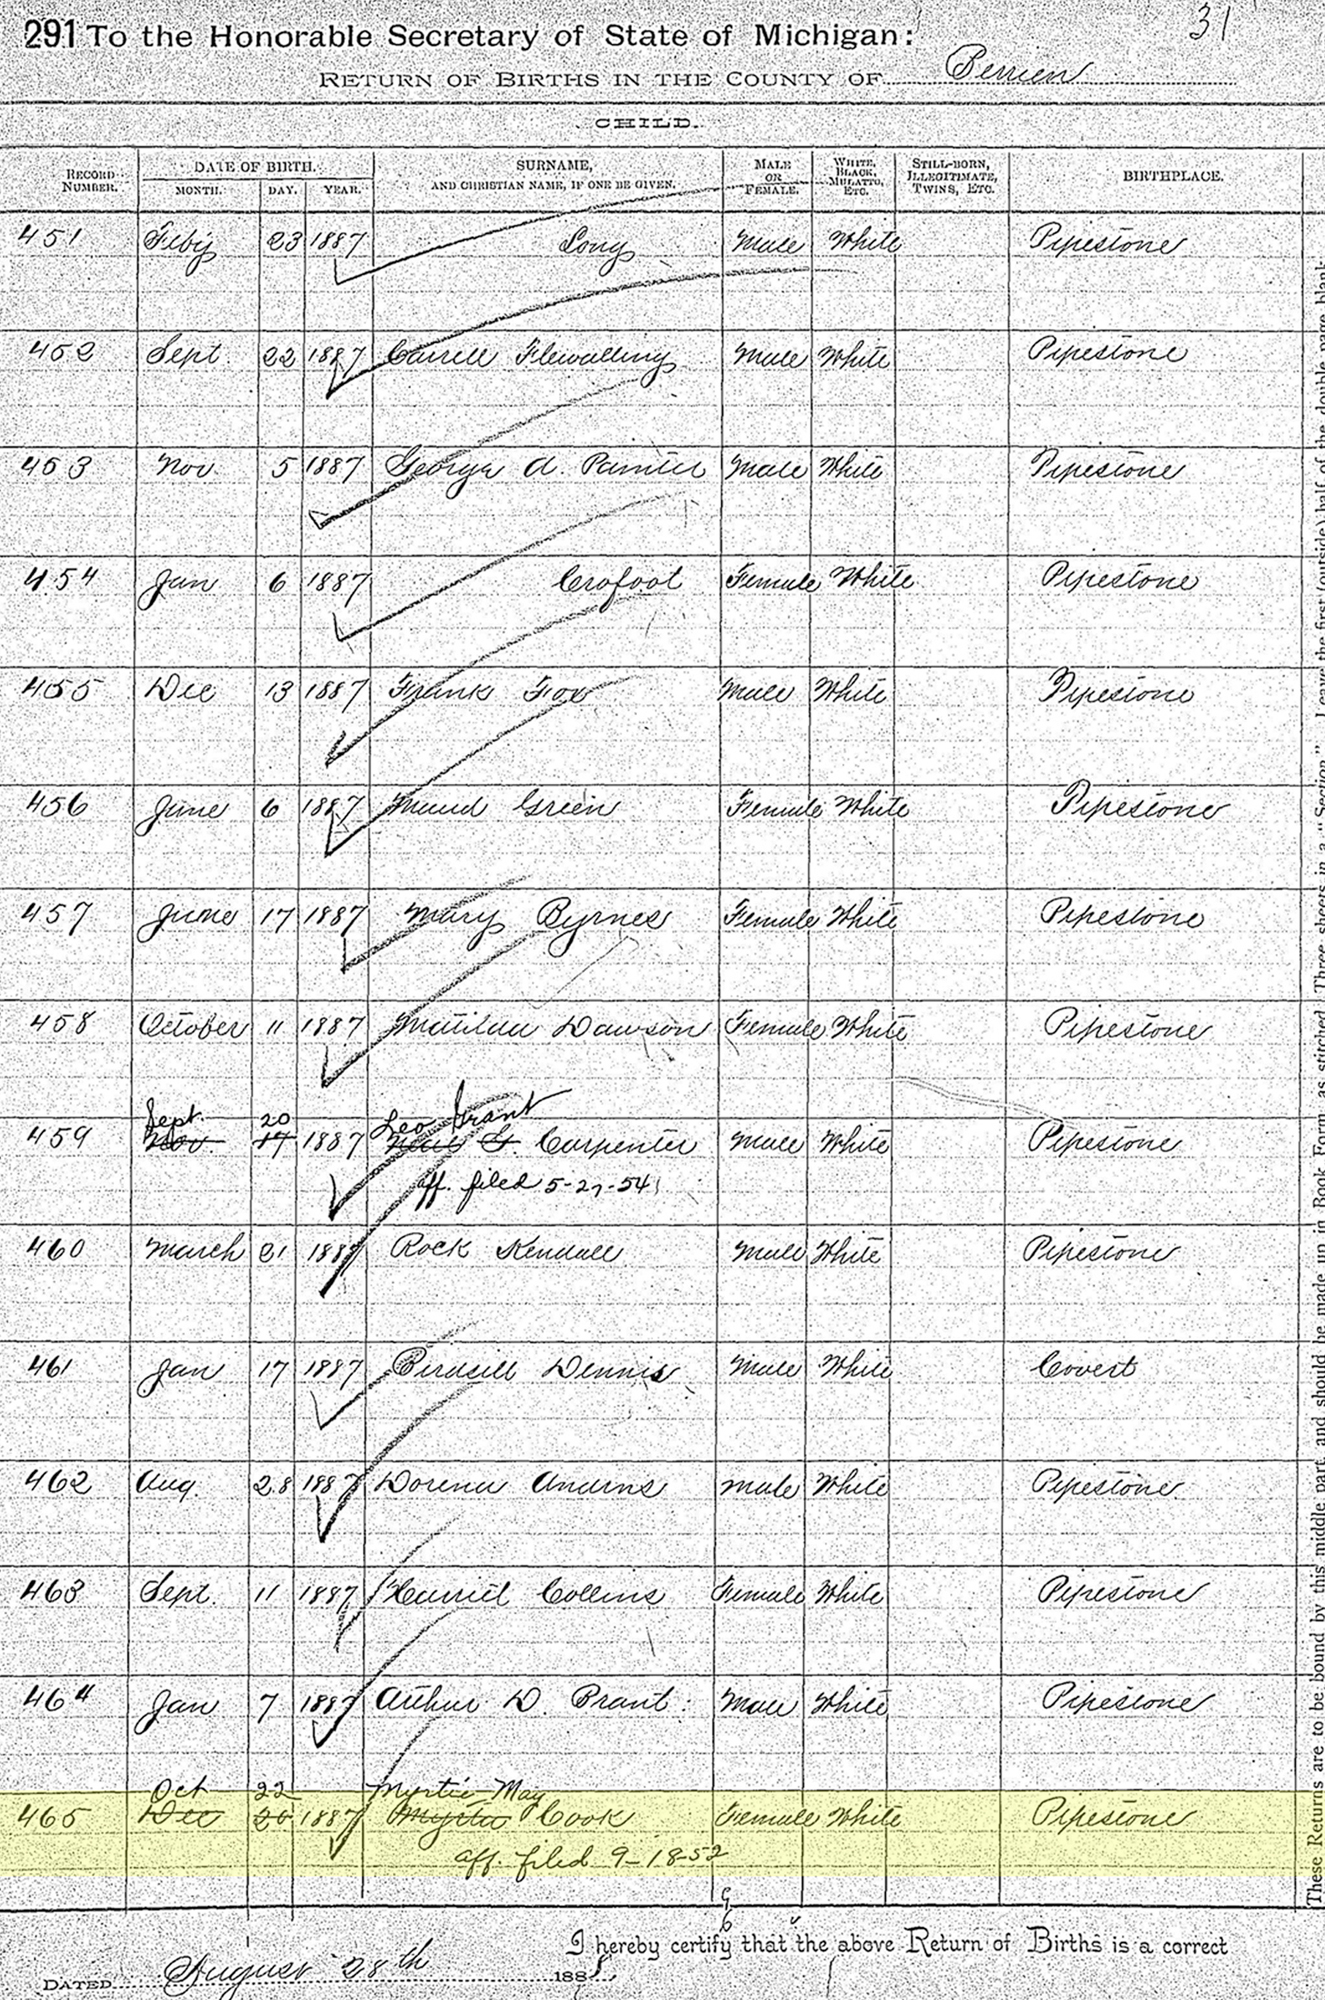 291 To the Honorable Secretary of State of Michigan: 31
RETURN OF BIRTHS IN THE COUNTY OF Berrien
CHILD.
RECORD NUMBER. DATE OF BIRTH. MONTH. DAY. YEAR. SURNAME, AND CHRISTIAN NAME, IF ONE BE GIVEN. MALE OR FEMALE. WHITE, BLACK, MULATTO, ETC. STILL-BORN, ILLEGITIMATE, TWINS, ETC. BIRTHPLACE.
451 Feby 23 1887 Long Male White Pipestone
452 Sept. 22 1887 Carrell Flewalling Male White Pipestone
453 Nov. 5 1887 George A. Painter Male White Pipestone
454 Jan 6 1887 Crofoot Female White Pipestone
455 Dec 13 1887 Frank Fox Male White Pipestone
456 June 6 1887 Maud Green Female White Pipestone
457 June 17 1887 Mary Byrnes Female White Pipestone
458 October 11 1887 Matilda Dawson Female White Pipestone
Sept. 20 Leo Grant
459 Nov. 17 1887 G. Carpenter Male White Pipestone
aff. filed 5-27-54
460 March 21 1887 Rock Kendall Male White Pipestone
461 Jan 17 1887 Birdsill Dennis Male White Covert
462 Aug. 28 1887 Dorena Andrns Male White Pipestone
463 Sept. 11 1887 Harriet Collins Female White Pipestone
464 Jan 7 1887 Arthur D. Brant. Male White Pipestone
Oct 22 Myrtie May
465 Dec 20 1887 Myrta Cook Female White Pipestone
aff. filed 9-18-52
I hereby certify that the above Return of Births is a correct
DATED August 28th 1888
These Returns are to be bound by this middle part and should be made up in Book Form, as stitched, Three sheets in a "Section". Leave the first (outside) half of the double page blank